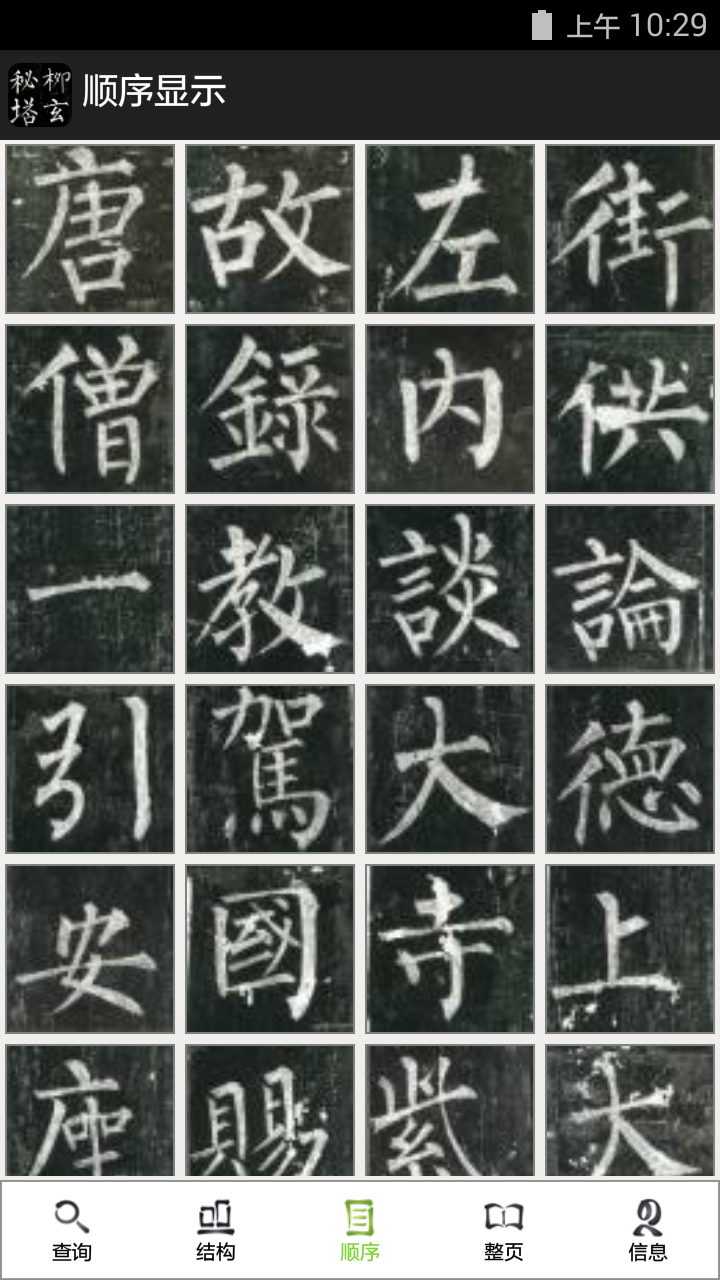 上午 10:29
秘 柳
塔 玄
顺序显示
唐 故 左 街
僧 錄 内 供
一 教 談 論
引 駕 大 德
安 國 寺 上
座 賜 紫 大
查询 结构 顺序 整页 信息